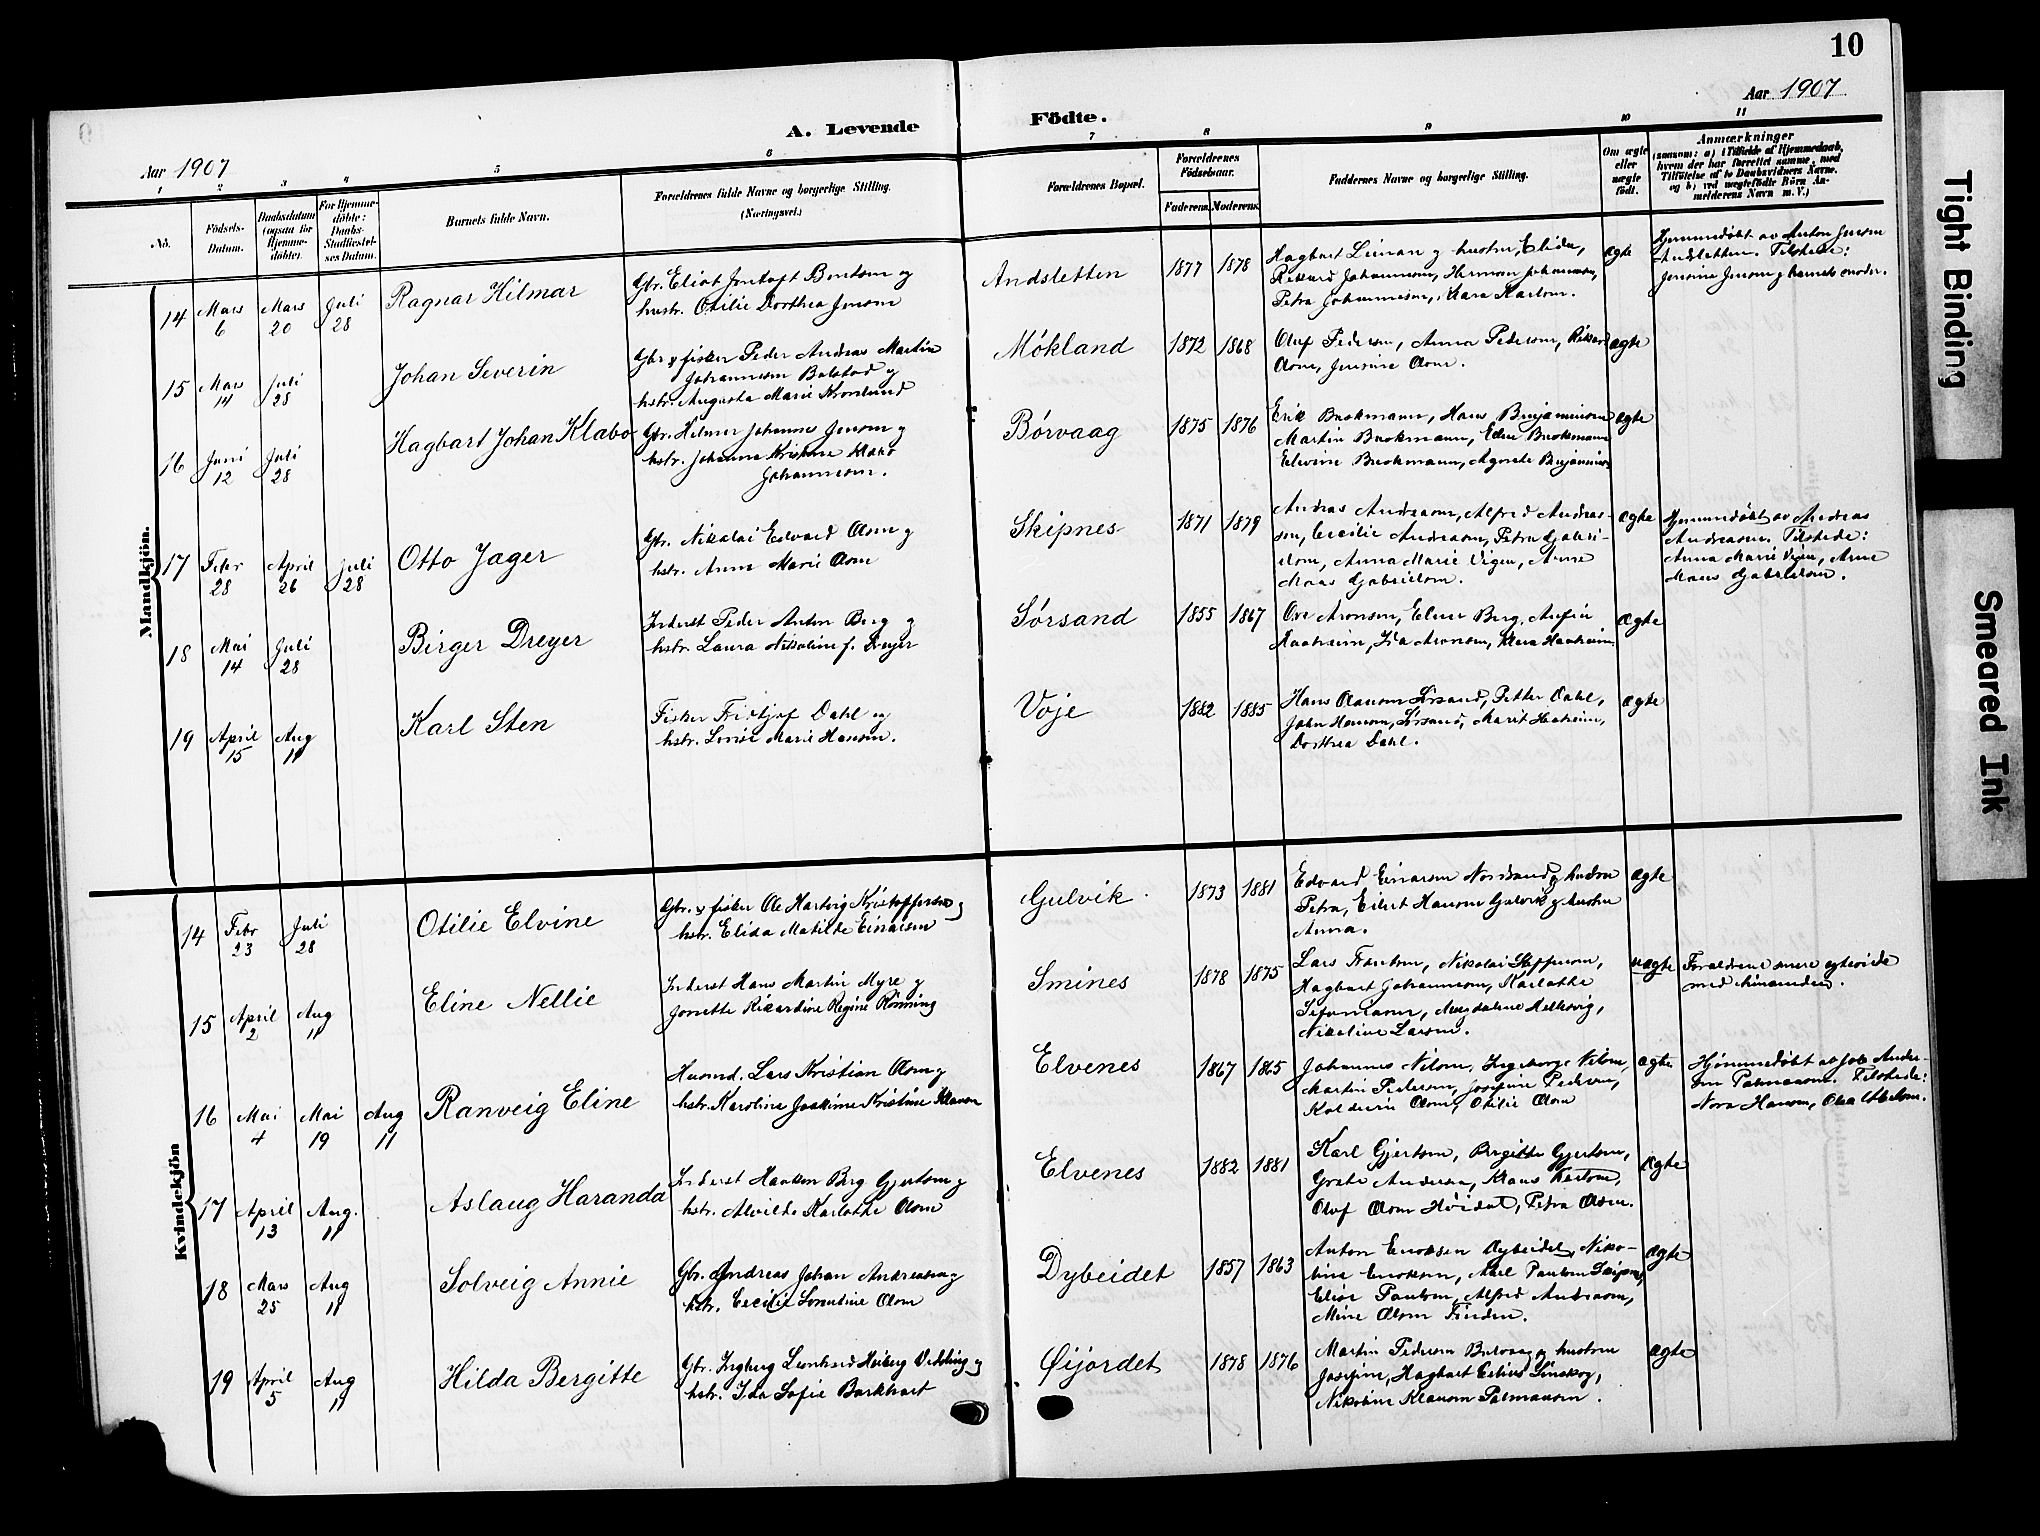 10
Aar 1907
Aar 1907
A. Levende
Födte.
1
2
3
4
5
6
7
8
9
10
11
No.
Födsels-
Datum.
Daabsdatum
(ogsaa for
Hjemme-
döbte).
For Hjemme-
döbte:
Daabs-
Stadfæstel-
ses Datum.
Barnets fulde Navn.
Forældrenes fulde Navne og borgerlige Stilling.
(Næringsvei.)
Forældrenes Bopæl.
Forældrenes
Födselsaar.
Faderens.
Moderens.
Faddernes Navne og borgerlige Stilling.
Om ægte
eller
uægte
födt.
Anmærkninger
(saasom: a) i Tilfælde af Hjemmedaab,
hvem der har forrettet samme, med
Tilföielse af to Daabsvidners Navne,
og b) ved uægtefödte Börn An-
melderens Navn m. V.)
Mandkjön.
14
Mars
6
Mars
20
Juli
28
Ragnar Hilmar
Gbr. Eliot Jentoft Bentsen og
hustr. Otilie Dorthea Jensen
Andsletten
1877
1878
Hagbart og hustru Elida,
Rikard Johannesen, Herman Johannesen,
Petra Johannesen, Klara Karlsen.
ægte
Hjemmedøbt av Anton Jensen
Andsletten. Tilstede:
Jensine Jensen og barnets moder.
15
Mars
14
Juli
28
Johan Severin
Gbr. & fisker Peder Andreas Martin
Johannesen Bolstad og
hstr. Augusta Marie Kronlund
Møkland
1872
1868
Oluf Pedersen, Anna Pedersen, Rikard
Olsen, Jensine Olsen.
ægte
16
Juni
12
Juli
28
Hagbart Johan Klabo
Gbr. Hilmer Johannes Jensen og
hstr. Johanna Kristine Klabo
Johannesen.
Børvaag
1875
1876
Erik Brokmann, Hans Benjaminsen
Martin Brokmann, Edea Brokmann
Elevine Brokmann, Agnete Benjaminsen
ægte
17
Febr
28
April
26
Juli
28
Otto Jager
Gbr. Nikolai Edvard Olsen og
hstr. Anna Marie Olsen
Skipnes
1871
1879
Andreas Andreasen, Alfred Andreas-
sen, Cecilie Andreasen, Petra Gabri-
elsen, Anna Marie Vigen, Anne
Maas Gabrielsen.
ægte
Hjemmedøbt av Andreas
Andreasen. Tilstede:
Anna Marie Vigen, Anne
Maas Gabrielsen.
18
Mai
14
Juli
28
Birger Dreyer
Inderst Peder Anton Berg og
hstr. Laura Nikoline f. Dreyer
Sørsand
1855
1867
Ove Aronsen, Elmer Berg,
Haaheim, Ida Aronsen, Klara Haaheim
ægte
19
April
15
Aug
11
Karl Sten
Fisker Fridtjof Dahl og
hstr. Lovise Marie Hansen.
Voje
1882
1885
Hans Olausen Sørsand, Petter Dahl,
John Hansen, Sørsand, Marit Haaheim,
Dorthea Dahl.
ægte
Kvindekjön
14
Febr
23
Juli
28
Otilie Elvine
Gbr. & fisker Ole Hartvig Kristoffersen og
hstr. Elida Matilde Einarsen
Gulvik
1873
1881
Edvard Einarsen Nordsand og hustru
Petra, Eilert Hansen Gulvik og hustru
Anna.
ægte
15
April
2
Aug
11
Eline Nellie
Inderst Hans Martin Myre og
Jonette Rikardine Regine Rønning
Sminnes
1878
1875
Lars Frantsen, Nikolai Steffensen,
Hagbart Johannesen, Karlotte
Magdalene Melkevig,
Nikoline Larsen.
uægte
Forældrene senere egteviede
med hinanden.
16
Mai
4
Mai
19
Aug
11
Ranveig Eline
Husmd. Lars Kristian Olsen og
hstr. Karoline Joakime Kristine Klausen
Elvenes
1867
1865
Johannes Nilsen, Ingeborg Nilsen,
Martin Pedersen, Josefine Pedersen,
Olsen, Otilie Olsen
ægte
Hjemmedøbt af Job Ander-
sen Palmansen. Tilstede:
Nora Hansen,
17
April
13
Aug.
11
Aslaug Haranda
Inderst Haakon Berg Gjertsen og
hstr. Alvilde Karlotte Olsen
Elvenes
1882
1881
Karl Gjertsen, Bergitte Gjertsen,
Grete Andersen, Klaus Karlsen,
Oluf Olsen Høidal, Petra Olsen.
ægte
18
Mars
25
Aug
11
Solveig Annie
Gbr. Andreas Johan Andreassen og
hstr. Cecilie Sorentine Olsen
Dybeidet
1857
1863
Anton Enoksen Dybeidet, Niko-
line Enoksen, Paulsen Skipnes,
Elise Paulsen, Alfred Andreasen,
Mine Olsen Finden.
ægte
19
April
5
Aug
11
Hilda Bergitte
Gbr. Ingberg Leonhard Heiberg Vedding og
hstr. Ida Sofie Burkhart
Øijordet
1878
1876
Martin Pedersen Burvaag og hustru
Josefine, Hagbart Edius Sinskog,
Nikoline Klausen Palmansen.
ægte
Tight Binding
Smeared Ink